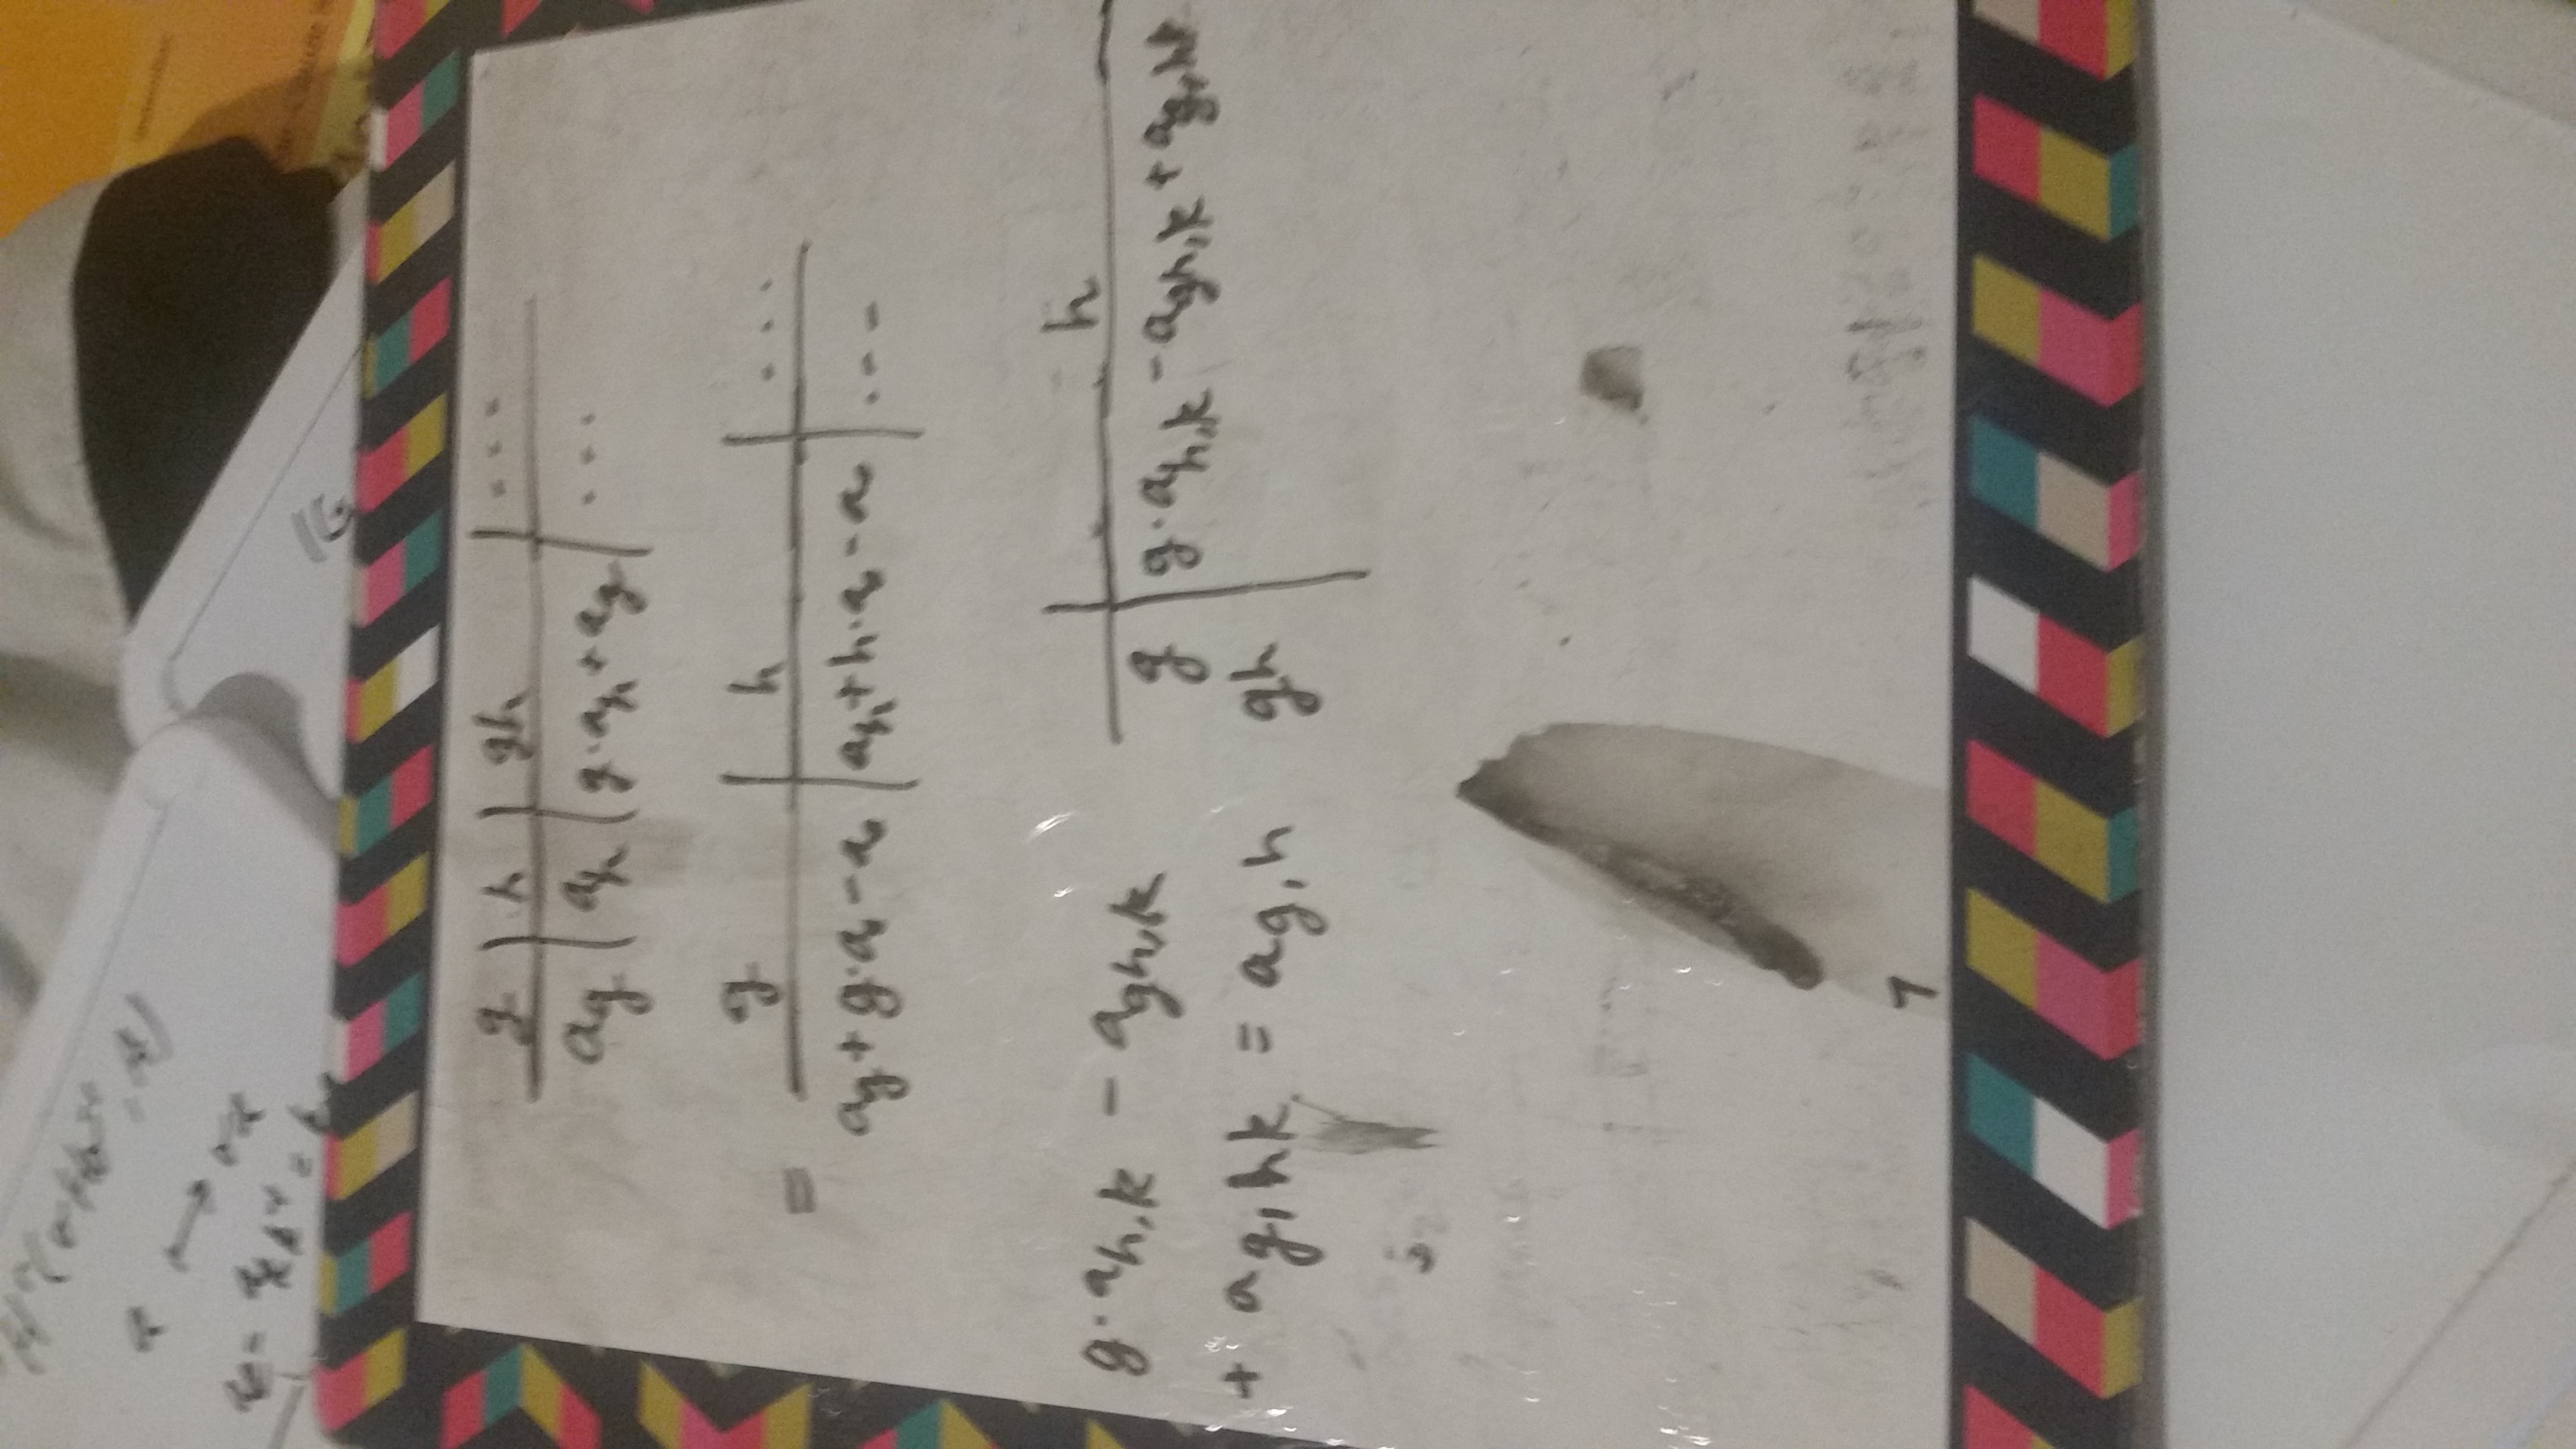 a ⟼ σa
g | h | gh | ...
a_g | a_h | g·a_h + a_g | ...
= g | h | ...
a_g + g·a₀ − a₀ | a_h + h·a₀ − a₀ | ...
g·a_{h,k} − a_{gh,k}
+ a_{g,hk} = a_{g,h}
| h
g | g·a_{h,k} − a_{gh,k} + a_{g,hk}
gh |